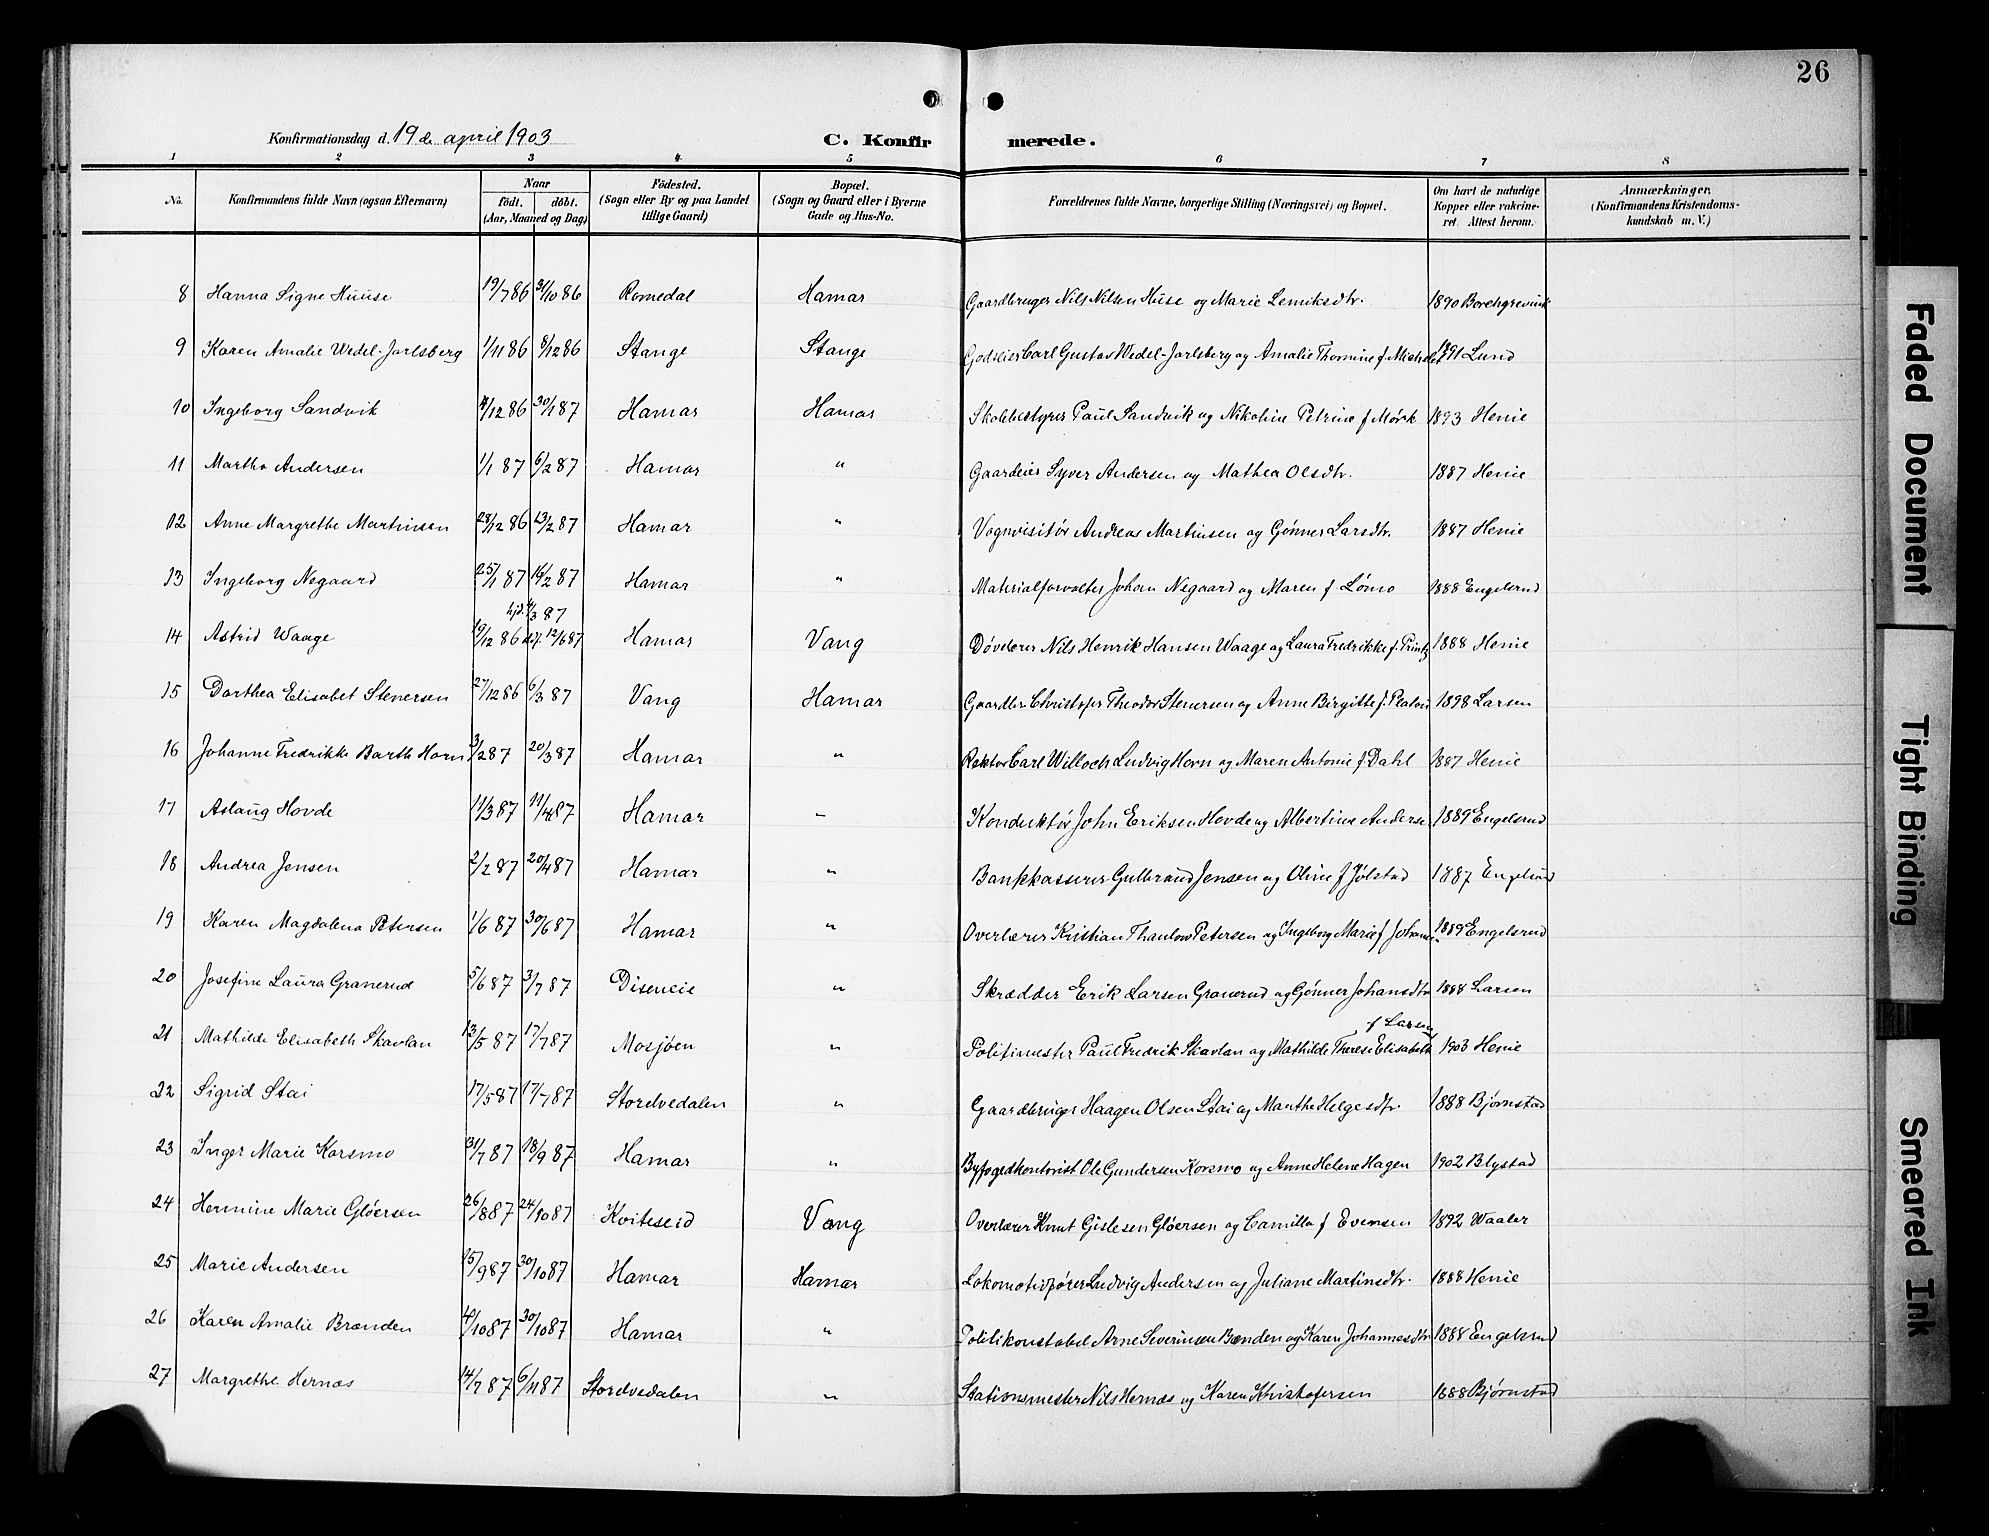 26
Konfirmationsdag d. 19de april 1903
C. Konfirmerede.
1 2 3 4 5 6 7 8
No. Konfirmandens fulde Navn (ogsaa Efternavn) Naar födt. döbt. (Aar, Maaned og Dag) Födested. (Sogn eller By og paa Landet tillige Gaard) Bopæl. (Sogn og Gaard eller i Byerne Gade og Hus-No. Forældrenes fulde Navne, borgerlige Stilling (Næringsvei) og Bopæl. Om havt de naturlige Kopper eller vakcineret. Attest herom. Anmærkninger. (Konfirmandens Kristendomskundskab m. V.)
8 Hanna Signe Huuse 19/7 86 31/10 86 Romedal Hamar Gaardbruger Nils Nilsen Huse og Marie Lemiksdtr. 1890 Borchgrevink
9 Karen Amalie Wedel-Jarlsberg 1/11 86 8/12 86 Stange Stange Godseier Carl Gustav Wedel-Jarlsberg og Amalie Thomine f. Michelet 1891 Lund
10 Ingeborg Sandvik 4/12 86 30/1 87 Hamar Hamar Skolebestyrer Paul Sandvik og Nikoline Petrine f Mørk 1893 Henie
11 Martha Andersen 1/1 87 6/2 87 Hamar " Gaardeier Syver Andersen og Mathea Olsdtr. 1887 Henie
12 Anne Margrethe Martinsen 28/12 86 13/2 87 Hamar " Vognvisitör Andreas Martinsen og Gönner Larsdtr. 1887 Henie
13 Ingeborg Negaard 25/1 87 16/2 87 Hamar " Materialforvalter Johan Negaard og Maren f. Lömo 1888 Engelsrud
hjd. 4/3 87
14 Astrid Waage 19/12 86 12/6 87 Hamar Vang Døvelærer Nils Henrik Hansen Waage og Laura Fredrikke f. Printz 1888 Henie
15 Dorthea Elisabet Stenersen 27/12 86 6/3 87 Vang Hamar Gaardbr. Christofer Theodor Stenersen og Anne Birgitte f. Platou 1898 Larsen
16 Johanne Fredrikke Barth Horn 3/2 87 20/3 87 Hamar " Rektor Carl Willoch Ludvig Horn og Maren Antonie f Dahl 1887 Henie
17 Aslaug Hovde 11/3 87 11/4 87 Hamar " Konduktör John Eriksen Hovde og Albertine Anderse 1889 Engelsrud
18 Andrea Jensen 2/2 87 20/4 87 Hamar " Bankkasserer Gulbrand Jensen og Oline f Jölstad 1887 Engelsrud
19 Karen Magdalena Petersen 1/6 87 30/6 87 Hamar " Overlærer Kristian Thaulow Petersen og Ingeborg Marie f Johansen 1889 Engelsrud
20 Josefine Laura Granerud 5/6 87 3/7 87 Diseneie " Skrædder Erik Larsen Granerud og Gönner Johansdtr 1888 Larsen
f Larsen
21 Mathilde Elisabeth Skavlan 13/5 87 17/7 87 Mosjöen " Politimester Paul Fredrik Skavlan og Mathilde Therese Elisabeth 1903 Henie
22 Sigrid Stai 17/5 87 17/7 87 Stordvedalen " Gaardbruger Haagen Olsen Stai og Marthe Helgesdtr. 1888 Bjørnstad
23 Inger Marie Korsmo 31/7 87 18/9 87 Hamar " Byfogedkontorist Ole Gundersen Korsmo og Anne Helene Hagen 1902 Blystad
24 Hermine Marie Glöersen 26/8 87 24/10 87 Kviteseid Vang Overlærer Knut Gislesen Glöersen og Camilla f Evensen 1892 Waaler
25 Marie Andersen 15/9 87 30/10 87 Hamar Hamar Lokomotivförer Ludvig Andersen og Juliane Martinsdtr. 1888 Henie
26 Karen Amalie Brænden 4/10 87 30/10 87 Hamar " Politikonstabel Arne Severinsen Bænden og Karen Johannesdtr 1888 Engelsrud
27 Margrethe Hernæs 14/7 87 6/11 87 Stordvedalen " Stationsmester Nils Hernæs og Karen Kristofersen 1888 Bjørnstad
Faded Document
Tight Binding
Smeared Ink